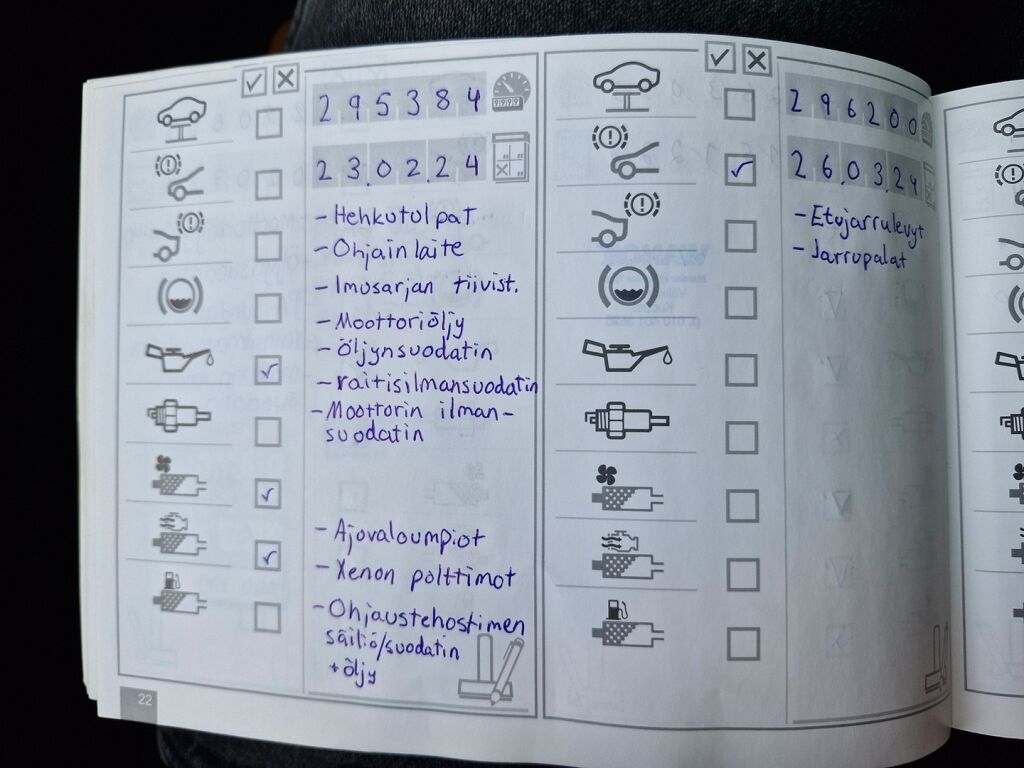 295384
23.02.24
- Hehkutulpat
- Ohjainlaite
- Imusarjan tiivist.
- Moottoriöljy
- öljynsuodatin
- raitisilmansuodatin
- Moottorin ilman-
suodatin
- Ajovaloumpiot
- Xenon polttimot
- Ohjaustehostimen
säiliö/suodatin
+ öljy
22
296200
26.03.24
- Etujarrulevyt
- Jarrupalat